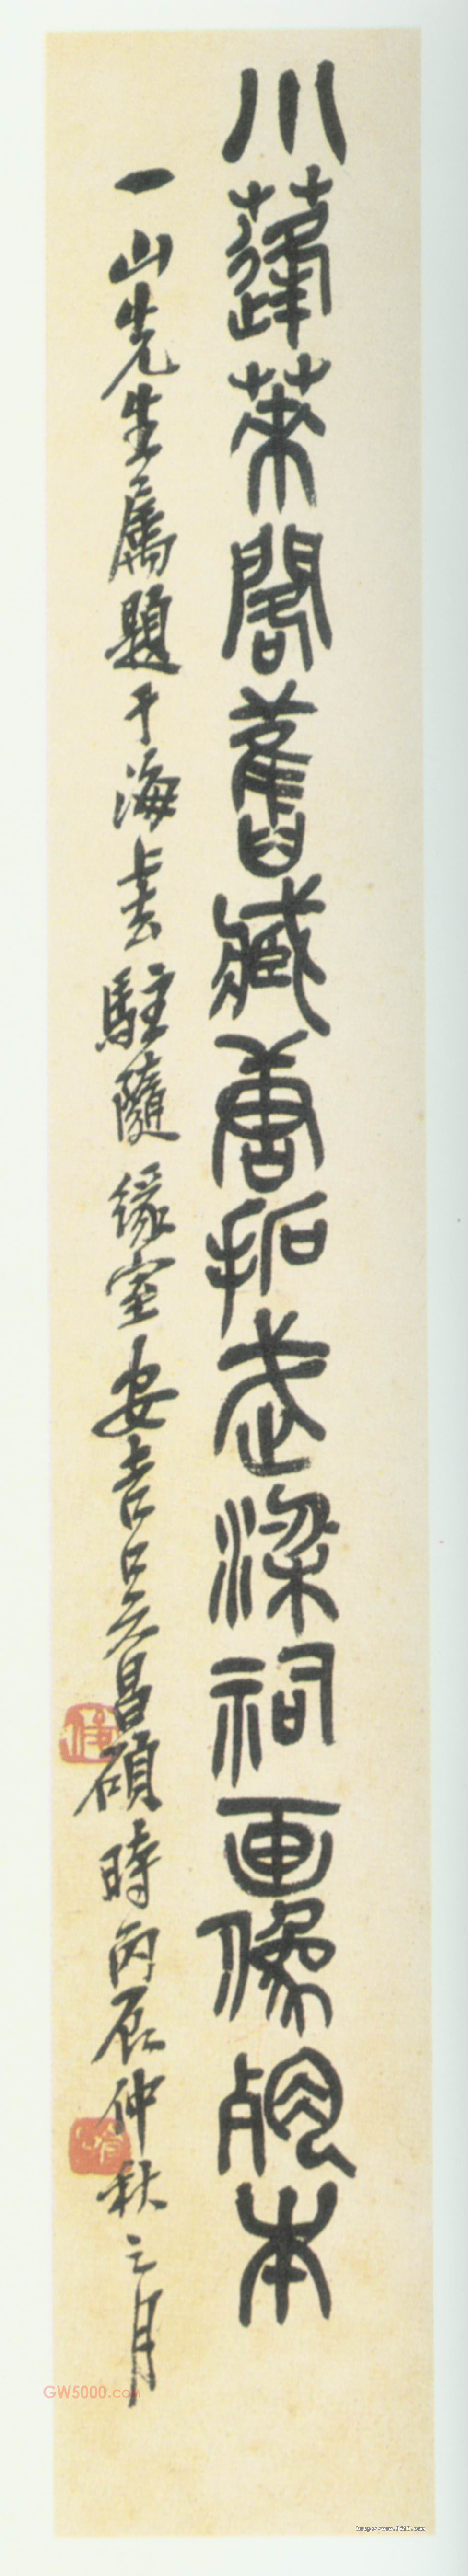 小蓬萊閣舊藏唐拓武梁祠画像本
一山先生屬題于海上去駐隨緣室安吉吳昌碩時丙辰仲秋之月
GW5000.com